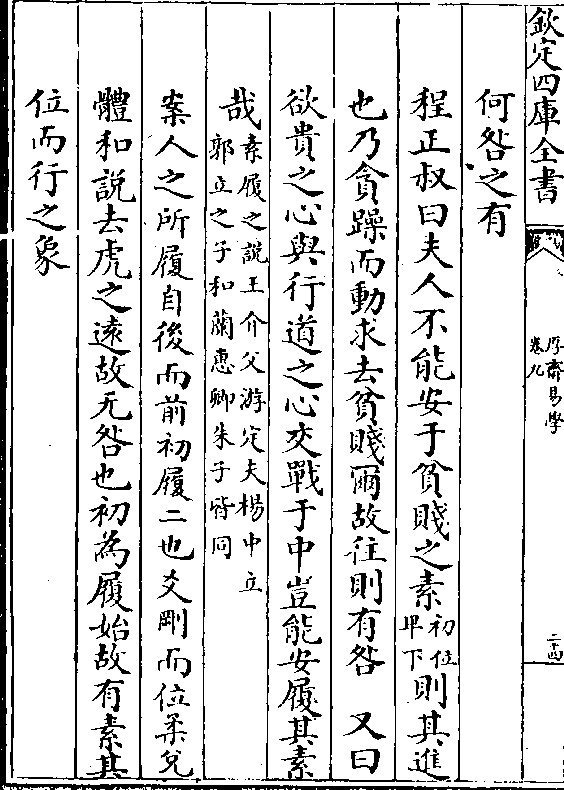 欽定四庫全書
厚齋易學
卷九
二十四
何咎之有
程正叔曰夫人不能安于貧賤之素初位卑下則其進
也乃貪躁而動求去貧賤爾故往則有咎　又曰
欲貴之心與行道之心交戰于中豈能安履其素
哉素履之說王介父游定夫楊中立郭立之子和蘭惠卿朱子皆同
案人之所履自後而前初履二也爻剛而位柔兌
體和說去虎之遠故无咎也初為履始故有素其
位而行之象